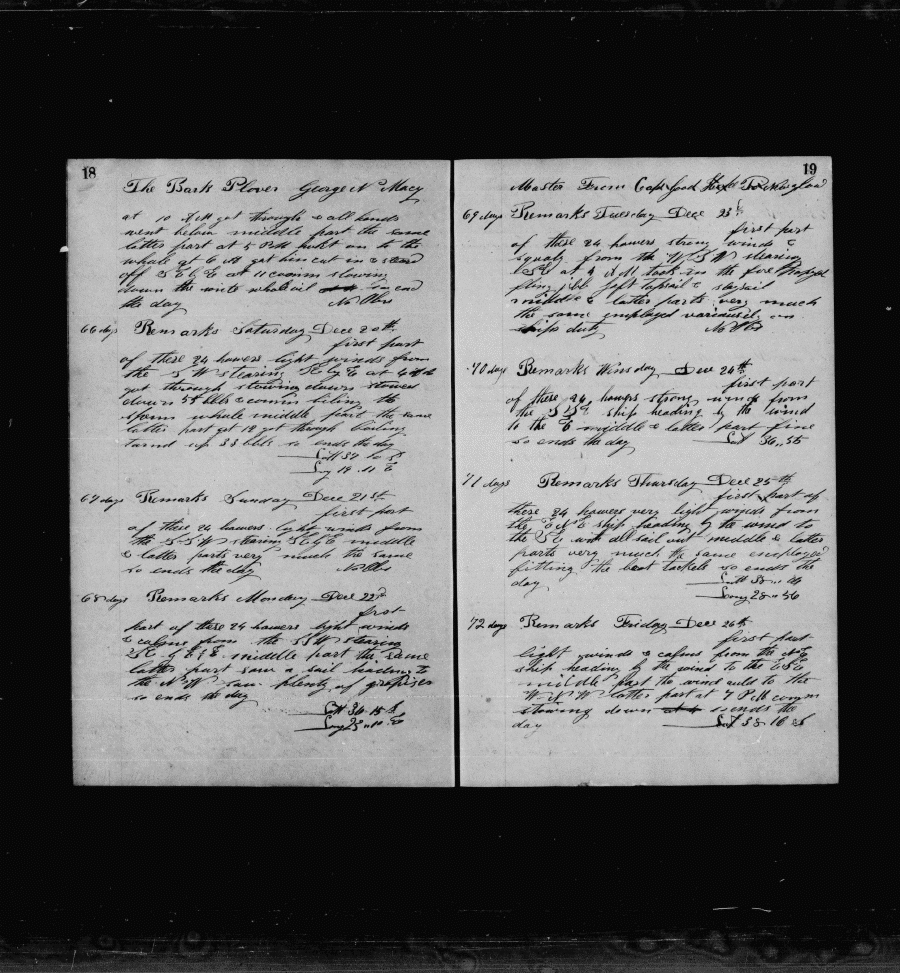 18
The Bark Plover George N Macy
at 10 AM got through & all hands
went below middle part the same
latter part at 5 PM went on to the
whale at 6 AM got him cut in & stead
off S E by E at 11 comin stowing
down the
the day No Obs
66 days Remarks Saturday Dec 20th
first part
of these 24 howers light winds from
the S W stearing SE by E at 4
got through stowing down stowed
down 58 bbls & comin biling the
sparm whale middle part the same
latter part got through boiling
turned up 33 bbls so ends the day
Latt 37
Long 19 11 E
67 days Remarks Sunday Dec 21st
first part
of these 24 howers light winds from
the S S W stearing SE by E middle
& latter parts very much the same
so ends the day No Obs
68 days Remarks Monday Dec 22d
first
part of these 24 howers light winds
& calms from the SSW stearing
middle part the same
latter part saw a sail to
the N W saw plenty of
so ends the day
Latt 36 15 S
Long 23 11 E
19
Master From Cape Good Hope
69 days Remarks Tuesday Dec 23
first part
of these 24 howers strong winds &
squaly from the W S W stearing
ESE at took in the fore
fling jib left topsail & staysail
middle & latter parts very much
the same employed on
ships duty No Obs
70 day Remarks Winsday Dec 24th
first part
of these 24 howers strong winds from
the ship heading by the wind
to the E middle & latter part fine
so ends the day Lat 36,,55
71 days Remarks Thursday Dec 25th
first part of
these 24 howers very light winds from
the ENE ship heading by the wind to
the SE with all sail out middle & latter
parts very much the same employed
fitting the boat tackels so ends the
day Latt 38 " 14
Long 28 " 56
72 days Remarks Friday Dec 26th
first part
light winds & calms from the NE
ship heading by the wind to the ESE
middle part the wind auld to the
W N W latter part at 7 PM comm
stowing down so ends the
day Lat 38 10 S